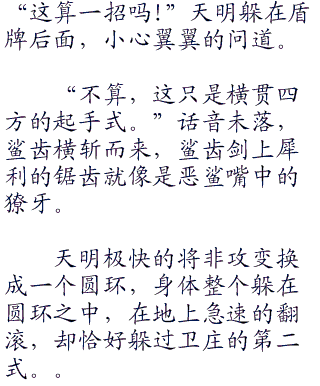 “这算一招吗!”天明躲在盾
牌后面，小心翼翼的问道。
“不算，这只是横贯四
方的起手式。”话音未落，
鲨齿横斩而来，鲨齿剑上犀
利的锯齿就像是恶鲨嘴中的
獠牙。
天明极快的将非攻变换
成一个圆环，身体整个躲在
圆环之中，在地上急速的翻
滚，却恰好躲过卫庄的第二
式。。